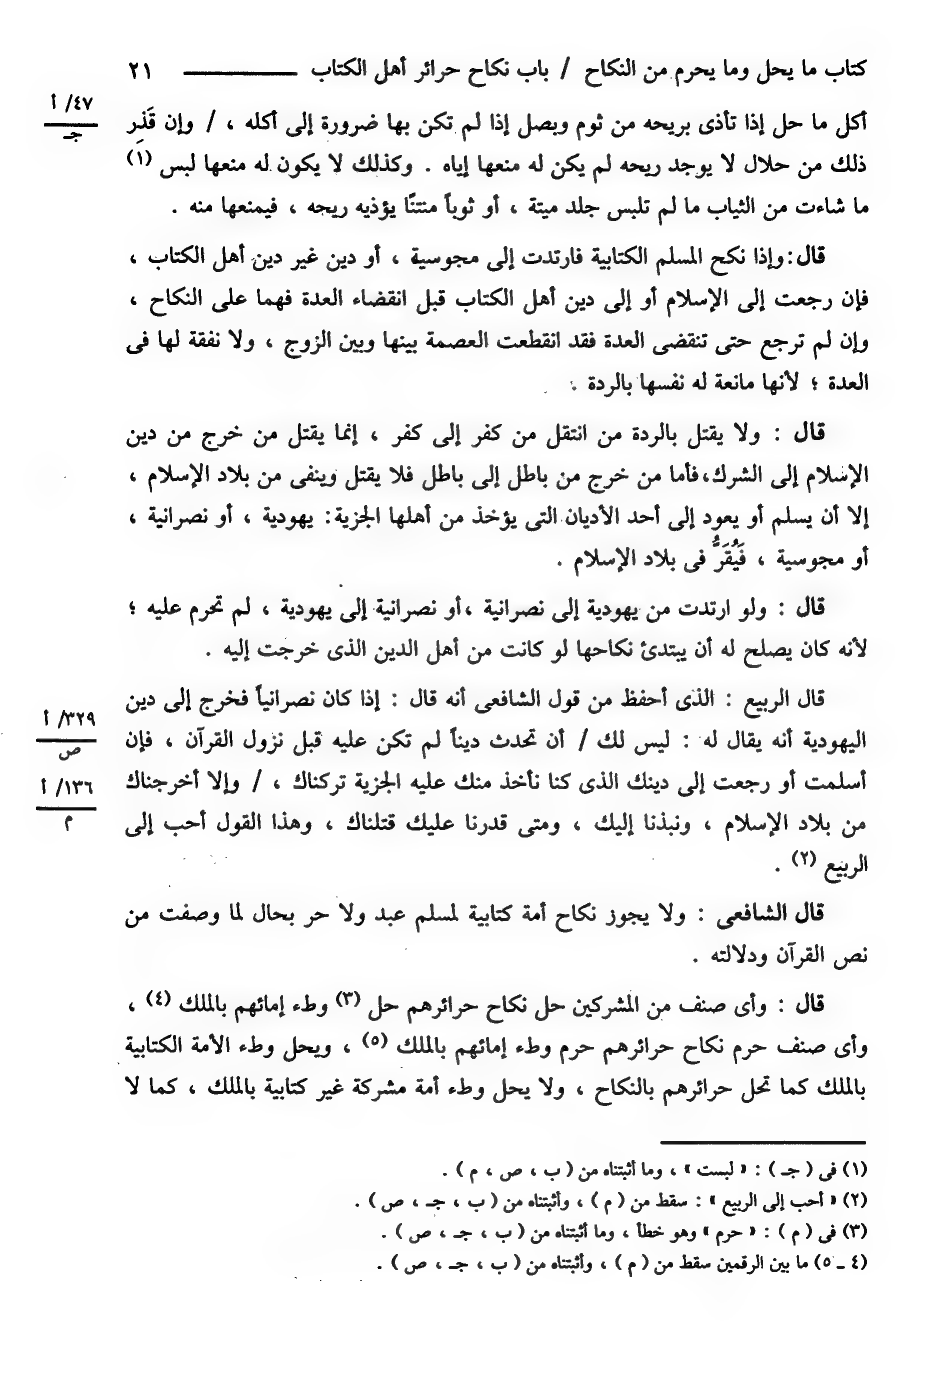 كتاب ما يحل وما يحرم من النكاح / باب نكاح حرائر أهل الكتاب ــــــــــ ٢١
أكل ما حل إذا تأذى بريحه من ثوم وبصل إذا لم تكن بها ضرورة إلى أكله ، / وإن قَذِر
٤٧/ أ
جـ
ذلك من حلال لا يوجد ريحه لم يكن له منعها إياه . وكذلك لا يكون له منعها لبس (١)
ما شاءت من الثياب ما لم تلبس جلد ميتة ، أو ثوباً منتنًا يؤذيه ريحه ، فيمنعها منه .
قال:وإذا نكح المسلم الكتابية فارتدت إلى مجوسية ، أو دين غير دين أهل الكتاب ،
فإن رجعت إلى الإسلام أو إلى دين أهل الكتاب قبل انقضاء العدة فهما على النكاح ،
وإن لم ترجع حتى تنقضى العدة فقد انقطعت العصمة بينها وبين الزوج ، ولا نفقة لها فى
العدة ؛ لأنها مانعة له نفسها بالردة .
قال : ولا يقتل بالردة من انتقل من كفر إلى كفر ، إنما يقتل من خرج من دين
الإسلام إلى الشرك،فأما من خرج من باطل إلى باطل فلا يقتل وينفى من بلاد الإسلام ،
إلا أن يسلم أو يعود إلى أحد الأديان التى يؤخذ من أهلها الجزية: يهودية ، أو نصرانية ،
أو مجوسية ، فَيُقَرُّ فى بلاد الإسلام .
قال : ولو ارتدت من يهودية إلى نصرانية ،أو نصرانية إلى يهودية ، لم تحرم عليه ؛
لأنه كان يصلح له أن يبتدئ نكاحها لو كانت من أهل الدين الذى خرجت إليه .
قال الربيع : الذى أحفظ من قول الشافعى أنه قال : إذا كان نصرانياً فخرج إلى دين
اليهودية أنه يقال له : ليس لك / أن تحدث ديناً لم تكن عليه قبل نزول القرآن ، فإن
٣٢٩/ أ
ص
أسلمت أو رجعت إلى دينك الذى كنا نأخذ منك عليه الجزية تركناك ، / وإلا أخرجناك
١٣٦/ أ
م
من بلاد الإسلام ، ونبذنا إليك ، ومتى قدرنا عليك قتلناك ، وهذا القول أحب إلى
الربيع (٢) .
قال الشافعى : ولا يجوز نكاح أمة كتابية لمسلم عبد ولا حر بحال لما وصفت من
نص القرآن ودلالته .
قال : وأى صنف من المشركين حل نكاح حرائرهم حل (٣) وطء إمائهم بالملك (٤) ،
وأى صنف حرم نكاح حرائرهم حرم وطء إمائهم بالملك (٥) ، ويحل وطء الأمة الكتابية
بالملك كما تحل حرائرهم بالنكاح ، ولا يحل وطء أمة مشركة غير كتابية بالملك ، كما لا
(١) فى ( جـ ) : « لبست » ، وما أثبتناه من ( ب ، ص ، م ) .
(٢) « أحب إلى الربيع » : سقط من ( م ) ، وأثبتناه من ( ب ، جـ ، ص ) .
(٣) فى ( م ) : « حرم » وهو خطأ ، وما أثبتناه من ( ب ، جـ ، ص ) .
(٤ ـ ٥) ما بين الرقمين سقط من ( م ) ، وأثبتناه من ( ب ، جـ ، ص ) .